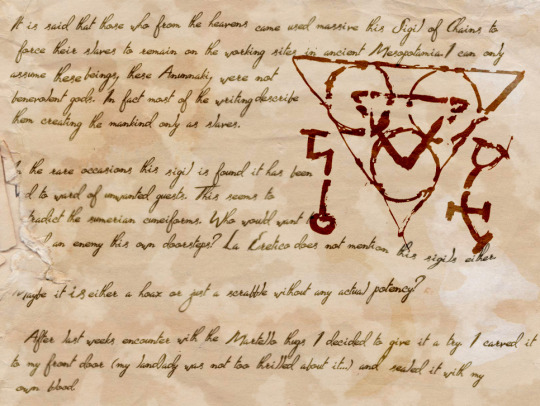 It is said that those who from the heavens came used massive this Sigil of Chains to
force their slaves to remain on the working sites in ancient Mesopotamia. I can only
assume these beings, these Anunnaki, were not
benevolent gods. In fact most of the writing describe
them creating the mankind only as slaves.
the rare occasions this sigil is found it has been
d to ward of unwanted guests. This seems to
tradict the sumerian cuneiforms. Who would want
an enemy this own doorsteps? La Eretico does not mention this sigils either
Maybe it is either a hoax or just a scrabble without any actual potency?
After last weeks encounter with the Martello thugs I decided to give it a try. I carved it
to my front door (my landlady was not too thrilled about it...) and sealed it with my
own blood